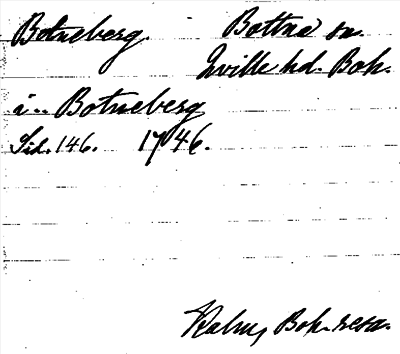 Botneberg. Bottna sn.
Qville hd. Boh.
i.. Botneberg
Sid. 146. 1746.
Kalm, Boh. resa.